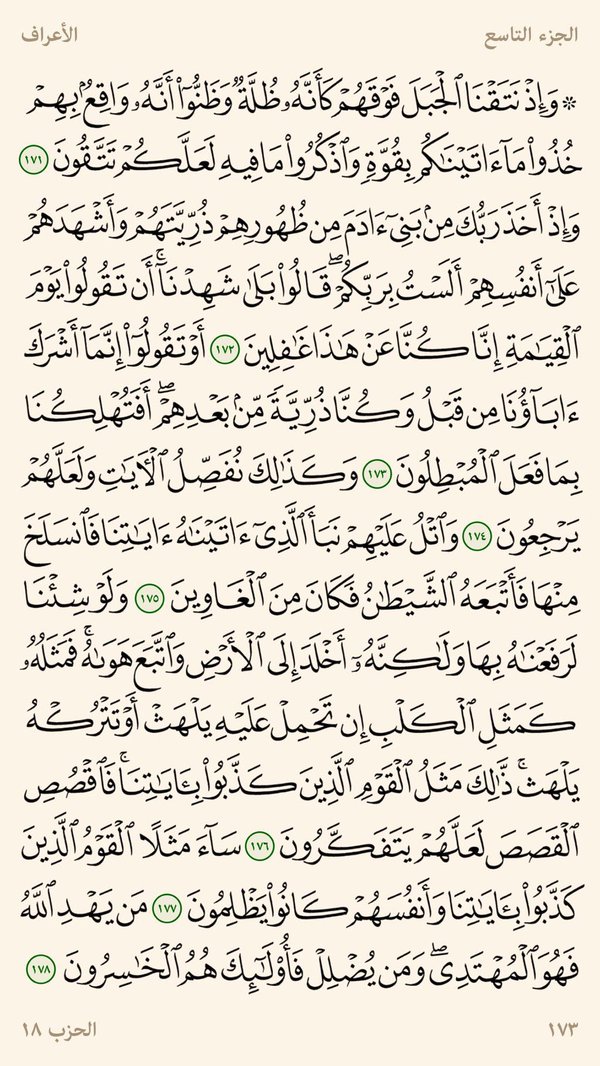 الجزء التاسع
الأعراف
۞ وَإِذۡ نَتَقۡنَا ٱلۡجَبَلَ فَوۡقَهُمۡ كَأَنَّهُۥ ظُلَّةٞ وَظَنُّوٓاْ أَنَّهُۥ وَاقِعُۢ بِهِمۡ
خُذُواْ مَآ ءَاتَيۡنَٰكُم بِقُوَّةٖ وَٱذۡكُرُواْ مَا فِيهِ لَعَلَّكُمۡ تَتَّقُونَ ١٧١
وَإِذۡ أَخَذَ رَبُّكَ مِنۢ بَنِيٓ ءَادَمَ مِن ظُهُورِهِمۡ ذُرِّيَّتَهُمۡ وَأَشۡهَدَهُمۡ
عَلَىٰٓ أَنفُسِهِمۡ أَلَسۡتُ بِرَبِّكُمۡۖ قَالُواْ بَلَىٰ شَهِدۡنَآۚ أَن تَقُولُواْ يَوۡمَ
ٱلۡقِيَٰمَةِ إِنَّا كُنَّا عَنۡ هَٰذَا غَٰفِلِينَ ١٧٢ أَوۡ تَقُولُوٓاْ إِنَّمَآ أَشۡرَكَ
ءَابَآؤُنَا مِن قَبۡلُ وَكُنَّا ذُرِّيَّةٗ مِّنۢ بَعۡدِهِمۡۖ أَفَتُهۡلِكُنَا
بِمَا فَعَلَ ٱلۡمُبۡطِلُونَ ١٧٣ وَكَذَٰلِكَ نُفَصِّلُ ٱلۡأٓيَٰتِ وَلَعَلَّهُمۡ
يَرۡجِعُونَ ١٧٤ وَٱتۡلُ عَلَيۡهِمۡ نَبَأَ ٱلَّذِيٓ ءَاتَيۡنَٰهُ ءَايَٰتِنَا فَٱنسَلَخَ
مِنۡهَا فَأَتۡبَعَهُ ٱلشَّيۡطَٰنُ فَكَانَ مِنَ ٱلۡغَاوِينَ ١٧٥ وَلَوۡ شِئۡنَا
لَرَفَعۡنَٰهُ بِهَا وَلَٰكِنَّهُۥٓ أَخۡلَدَ إِلَى ٱلۡأَرۡضِ وَٱتَّبَعَ هَوَىٰهُۚ فَمَثَلُهُۥ
كَمَثَلِ ٱلۡكَلۡبِ إِن تَحۡمِلۡ عَلَيۡهِ يَلۡهَثۡ أَوۡ تَتۡرُكۡهُ
يَلۡهَثۚ ذَّٰلِكَ مَثَلُ ٱلۡقَوۡمِ ٱلَّذِينَ كَذَّبُواْ بِـَٔايَٰتِنَاۚ فَٱقۡصُصِ
ٱلۡقَصَصَ لَعَلَّهُمۡ يَتَفَكَّرُونَ ١٧٦ سَآءَ مَثَلًا ٱلۡقَوۡمُ ٱلَّذِينَ
كَذَّبُواْ بِـَٔايَٰتِنَا وَأَنفُسَهُمۡ كَانُواْ يَظۡلِمُونَ ١٧٧ مَن يَهۡدِ ٱللَّهُ
فَهُوَ ٱلۡمُهۡتَدِيۖ وَمَن يُضۡلِلۡ فَأُوْلَٰٓئِكَ هُمُ ٱلۡخَٰسِرُونَ ١٧٨
١٧٣
الحزب ١٨